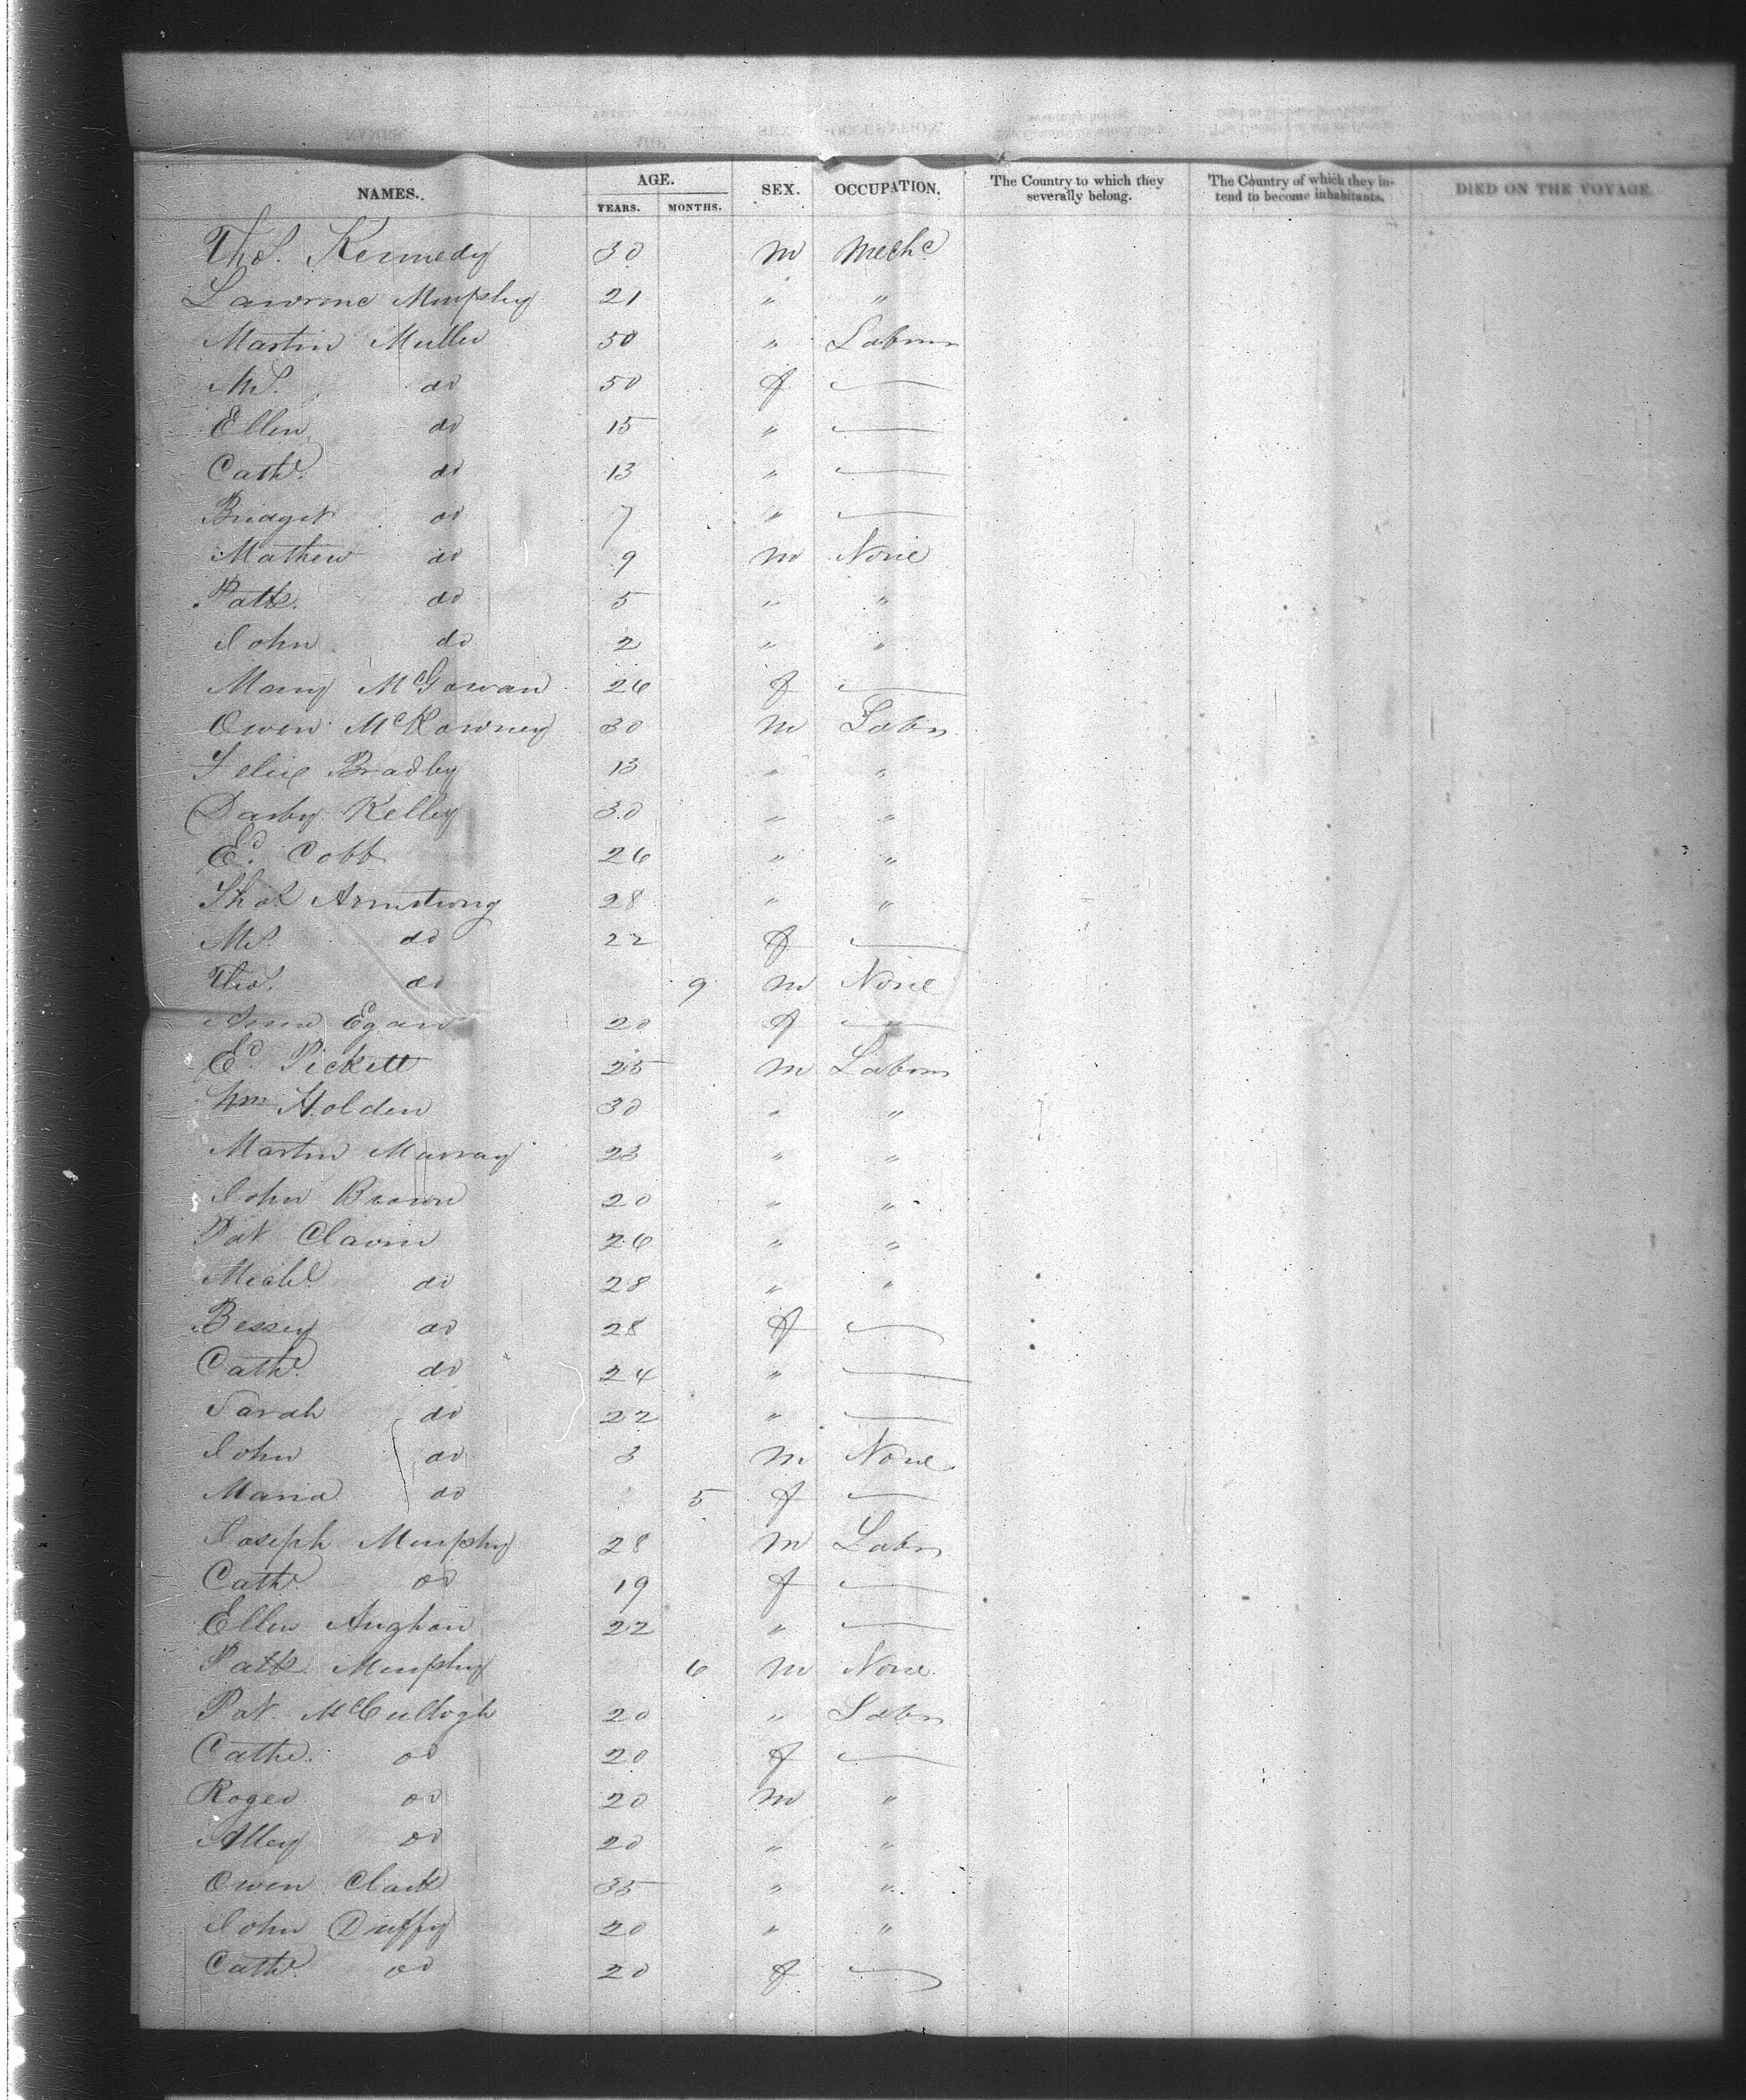 NAMES. AGE. SEX. OCCUPATION. The Country to which they severally belong. The Country of which they intend to become inhabitants. DIED ON THE VOYAGE.
YEARS. MONTHS.
Thos. Kennedy 30 m Mechc
Lawrence Murphy 21 " "
Martin Muller 50 " Labour
Ms. do 50 f —
Ellen do 15 " —
Cathe. do 13 " —
Bridget do 7 " —
Mathew do 9 m None
Patk. do 5 " "
John do 2 " "
Mary McGowan 26 f —
Owen McKowney 30 m Labr
Felix Bradley 13 " "
Darby Kelley 30 " "
Ed. Cobb 26 " "
Thos Armstrong 28 " "
Ms. do 22 f —
Thos. do 9 m None
Anne Egan 20 f —
Ed. Pickett 25 m Labour
Wm Holden 30 " "
Martin Murray 23 " "
John Brown 20 " "
Pat Clavin 26 " "
Michl. do 28 " "
Bessey do 28 f —
Cathe. do 24 " —
Sarah do 22 " —
John do 3 m None
Maria do 5 f —
Joseph Murphy 28 m Labr
Cathe. do 19 f —
Ellen Anghan 22 " —
Patk. Murphy 6 m None
Pat McCullogh 20 " Labr
Cathe. do 20 f —
Roger do 20 m "
Alley do 20 " "
Owen Clark 35 " "
John Duffy 20 " "
Cathe. do 20 f —